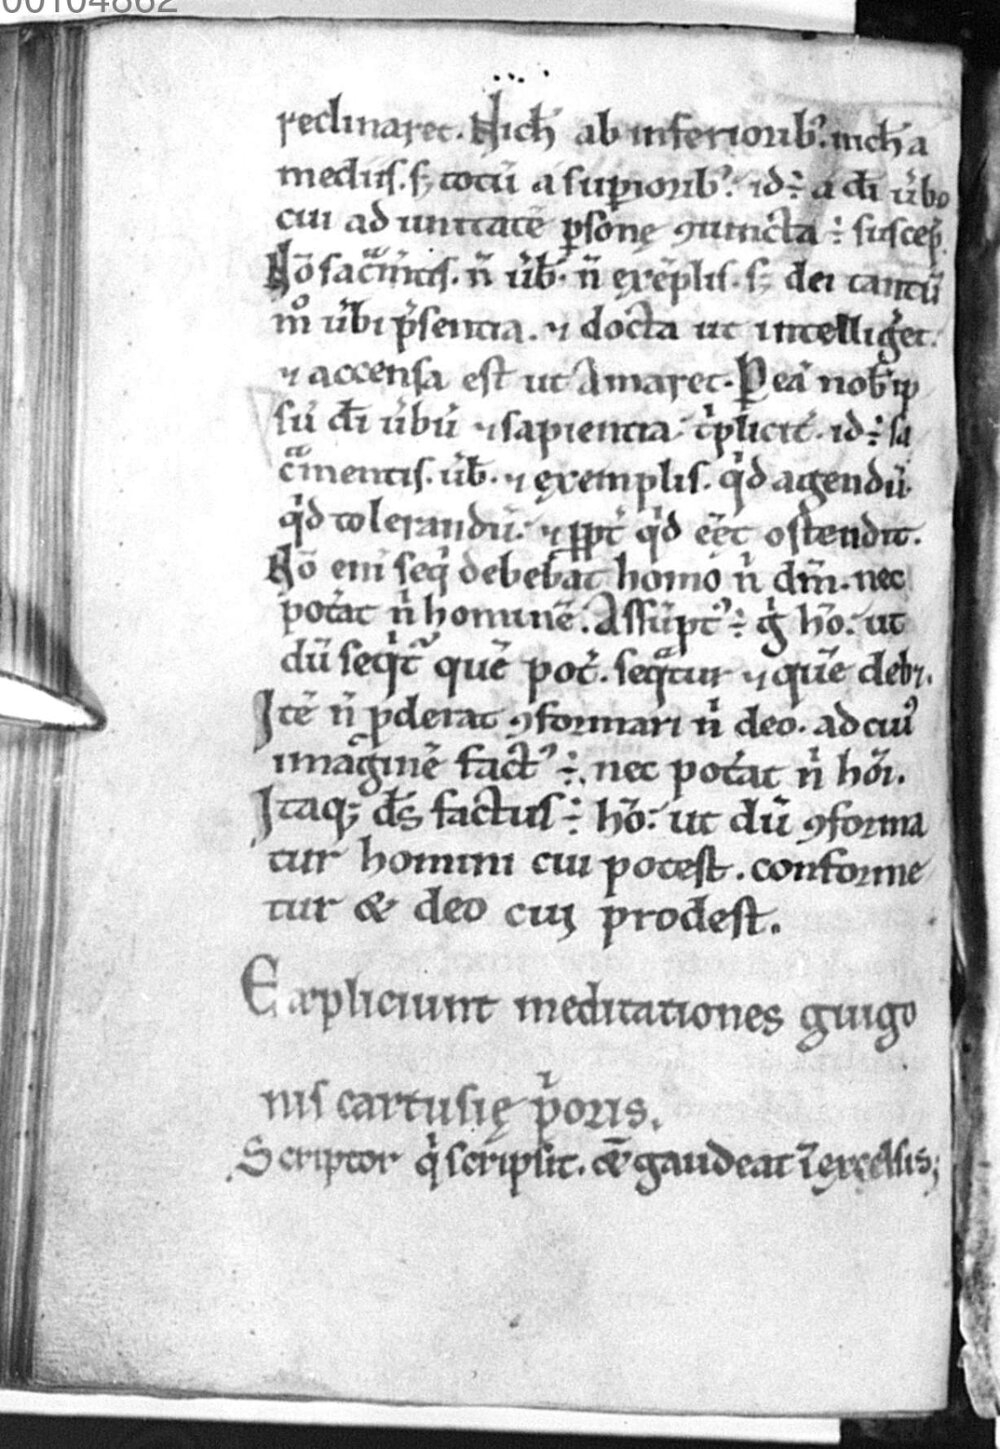 00104862
reclinaret. Nich̄ ab inferiorib᷒. nich̄ a
mediis. s; totū a suꝑiorib᷒. id ÷ a dī ūbo
cui ad unitatē ꝑsonę ꝯiuncta ÷ suscep̄.
Nō sac̄mtis. n̄ ūb᷒. n̄ exēplis. s; dei tantū
m̊ ūbi p̄sentia. ⁊ docta ut intelliḡet.
⁊ accensa est ut amaret. Ꝑ eā nob̄ ip
sū dī ūbū ⁊ sapientia t̄pliciť. id ÷ sa
c̄mentis. ūb̄. ⁊ exemplis. qͥd agendū.
qͥd tolerandū. ⁊ ꝓpť qͥd eēt ostendit.
Nō eni seqͥ debebat homo nͥ dm̄. nec
poťat nͥ hominē. Assūpt᷒ ÷ gͥ hō. ut
dū seqͥt᷑ quē poť. seqᵃtur ⁊ quē deb;.
Itē n̄ ꝓderat ꝯformari nͥ deo. ad cui᷒
imaginē fact᷒ ÷. nec poťat nͥ hōi.
Itaq; ds̄ factus ÷ hō. ut dū ꝯforma
tur homini cui potest. conforme
tur & deo cui prodest.
Expliciunt meditationes guigo
nis cartusię pͥoris.
Scriptor qͥ scripsit. cū gaudeat ī excelsis;